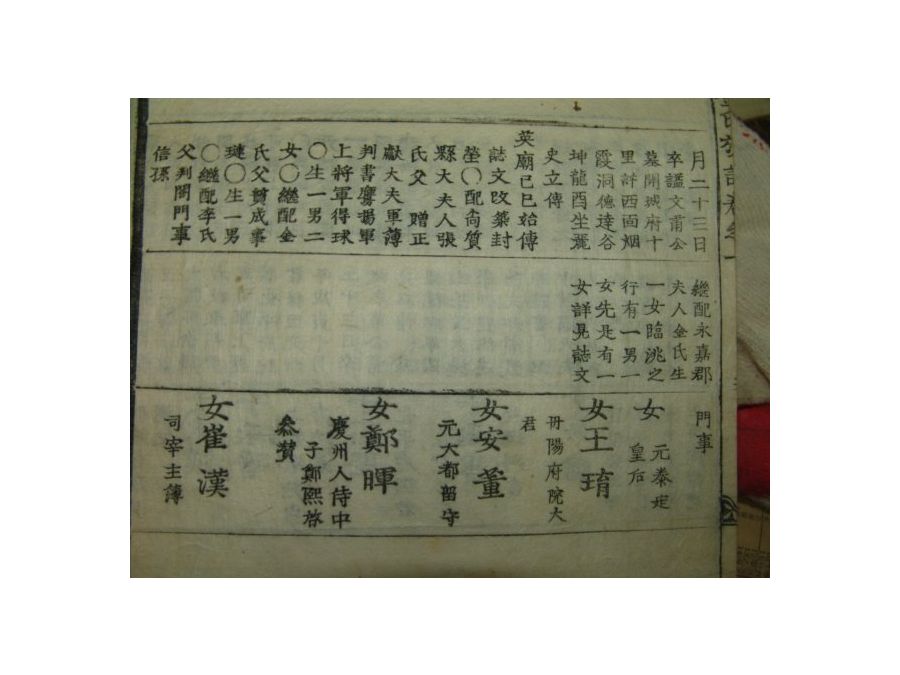 月二十三日
卒諡文甫公
墓開城府十
里許西面烟
霞洞德達谷
坤龍酉坐麗
史立傳
英廟己巳始傳
誌文改築封
塋〇配尙質
縣大夫人張
氏父 贈正
獻大夫軍薄
判書鷹揚軍
上將軍得球
〇生一男二
女〇繼配金
氏父貫成事
璉〇生一男
〇繼配李氏
父判閤門事
信孫
繼配永嘉郡
夫人金氏生
一女臨洮之
行有一男一
女先是有一
女詳見誌文
門事
女
元泰定
皇后
女王琄
丹陽府院大
君
女安董
元大都留守
女鄭暉
慶州人侍中
子鄭熙啓
叅贊
女崔漢
司宰主簿